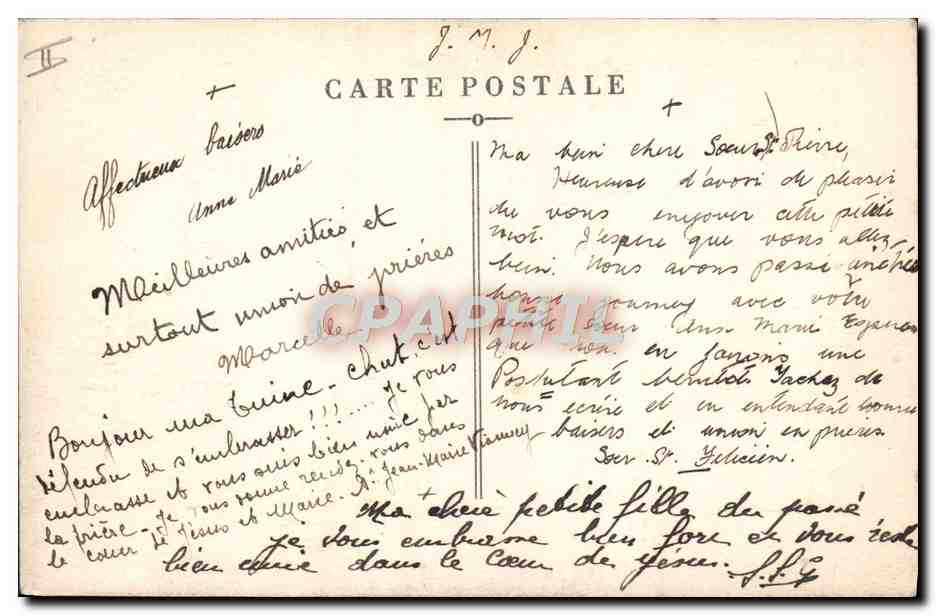 II
J. M. J.
CARTE POSTALE
Affectueux baisers
Anne Marie
Meilleures amitiés, et
surtout union de prières
Marcelle
Bonjour ma - chut, c'est
défendu de s'embrasser!!!.... Je vous
embrasse et vous suis bien unie par
la prière - Je vous donne rendez-vous dans
le cœur de Jésus et Marie. Sr Jean-Marie Vianney
Ma bein chere Soeur St Pierre,
Heureuse d'avoir de pleasir
de vous envoyer cette petite
mot. J'espere que vous allez
bein. Nous avons passé une très
bonne journey avec votre
petite Soeur Marie
que nous en ferons une
Postulant Tachez de
nous ecrire et en entendant
baisers et union en prieres
Soer St. Felicien.
Ma chère petite fille du passé
je vous embrasse bien fort et vous reste
bien unie dans le Cœur de Jésus.
CPAPHIL